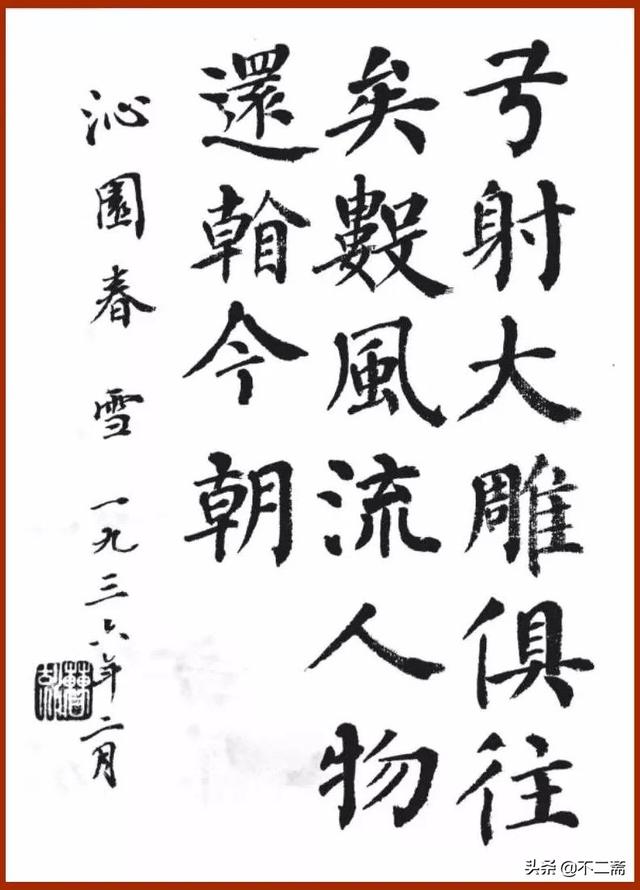 弓射大雕俱往
矣數風流人物
還看今朝
沁園春 雪 一九三六年二月
头条 @不二斋